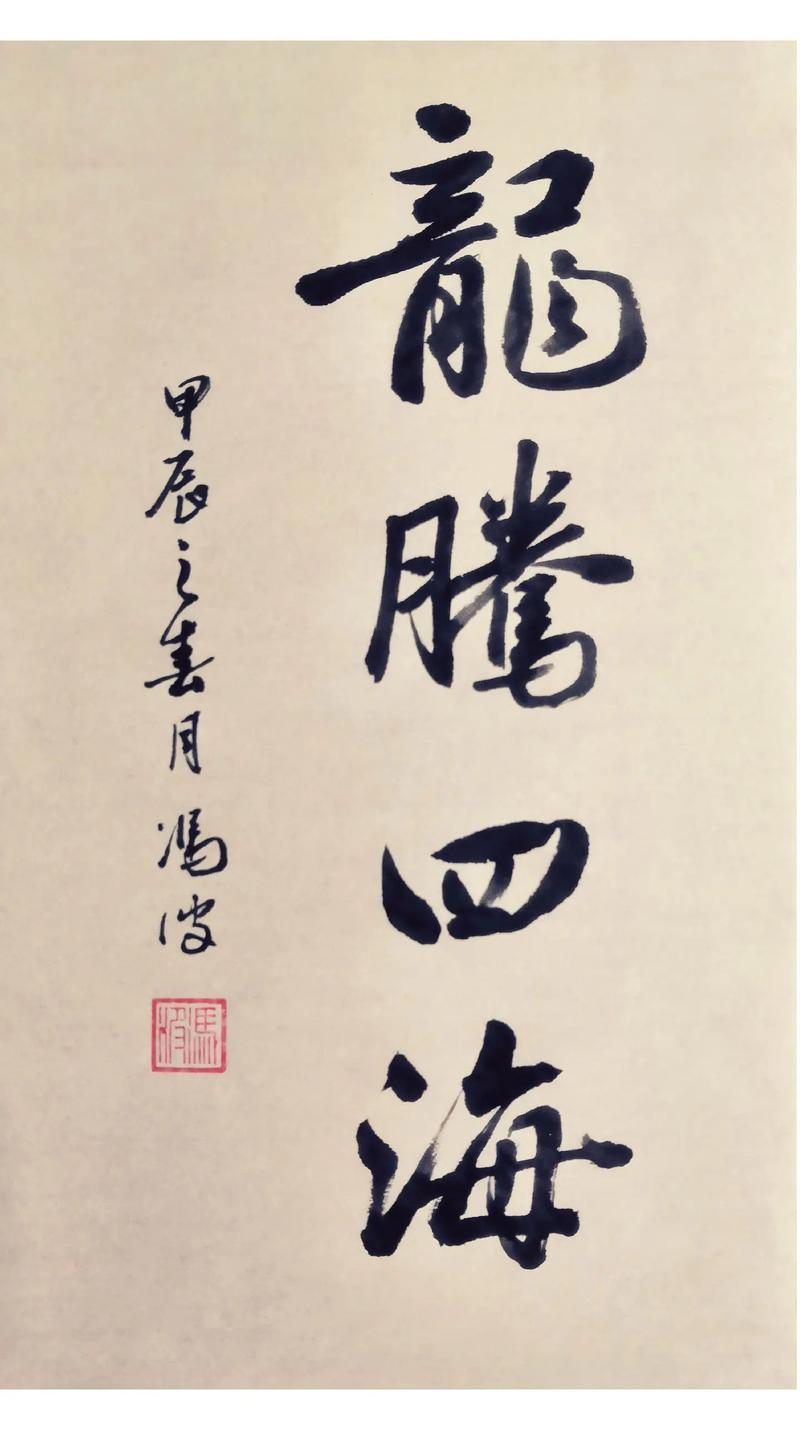 龍騰四海
甲辰之春月 馮波
馮波